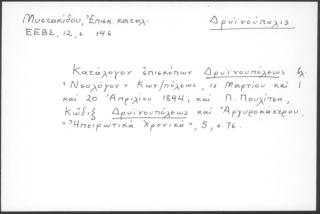 Μυστακίδου, Ἐπισκ. καταλ.
Δρυϊνούπολις
ΕΕΒΣ, 12, σ. 146
Κατάλογον ἐπισκόπων Δρυϊνουπόλεως ἐν
«Νεολόγου» Κων/πόλεως, 10 Μαρτίου καὶ 1
καὶ 20 Ἀπριλίου 1894, καὶ Π. Πουλίτσα,
Κῶδιξ Δρυϊνουπόλεως καὶ Ἀργυροκάστρου,
«Ἠπειρωτικὰ Χρονικά», 5, σ. 76.